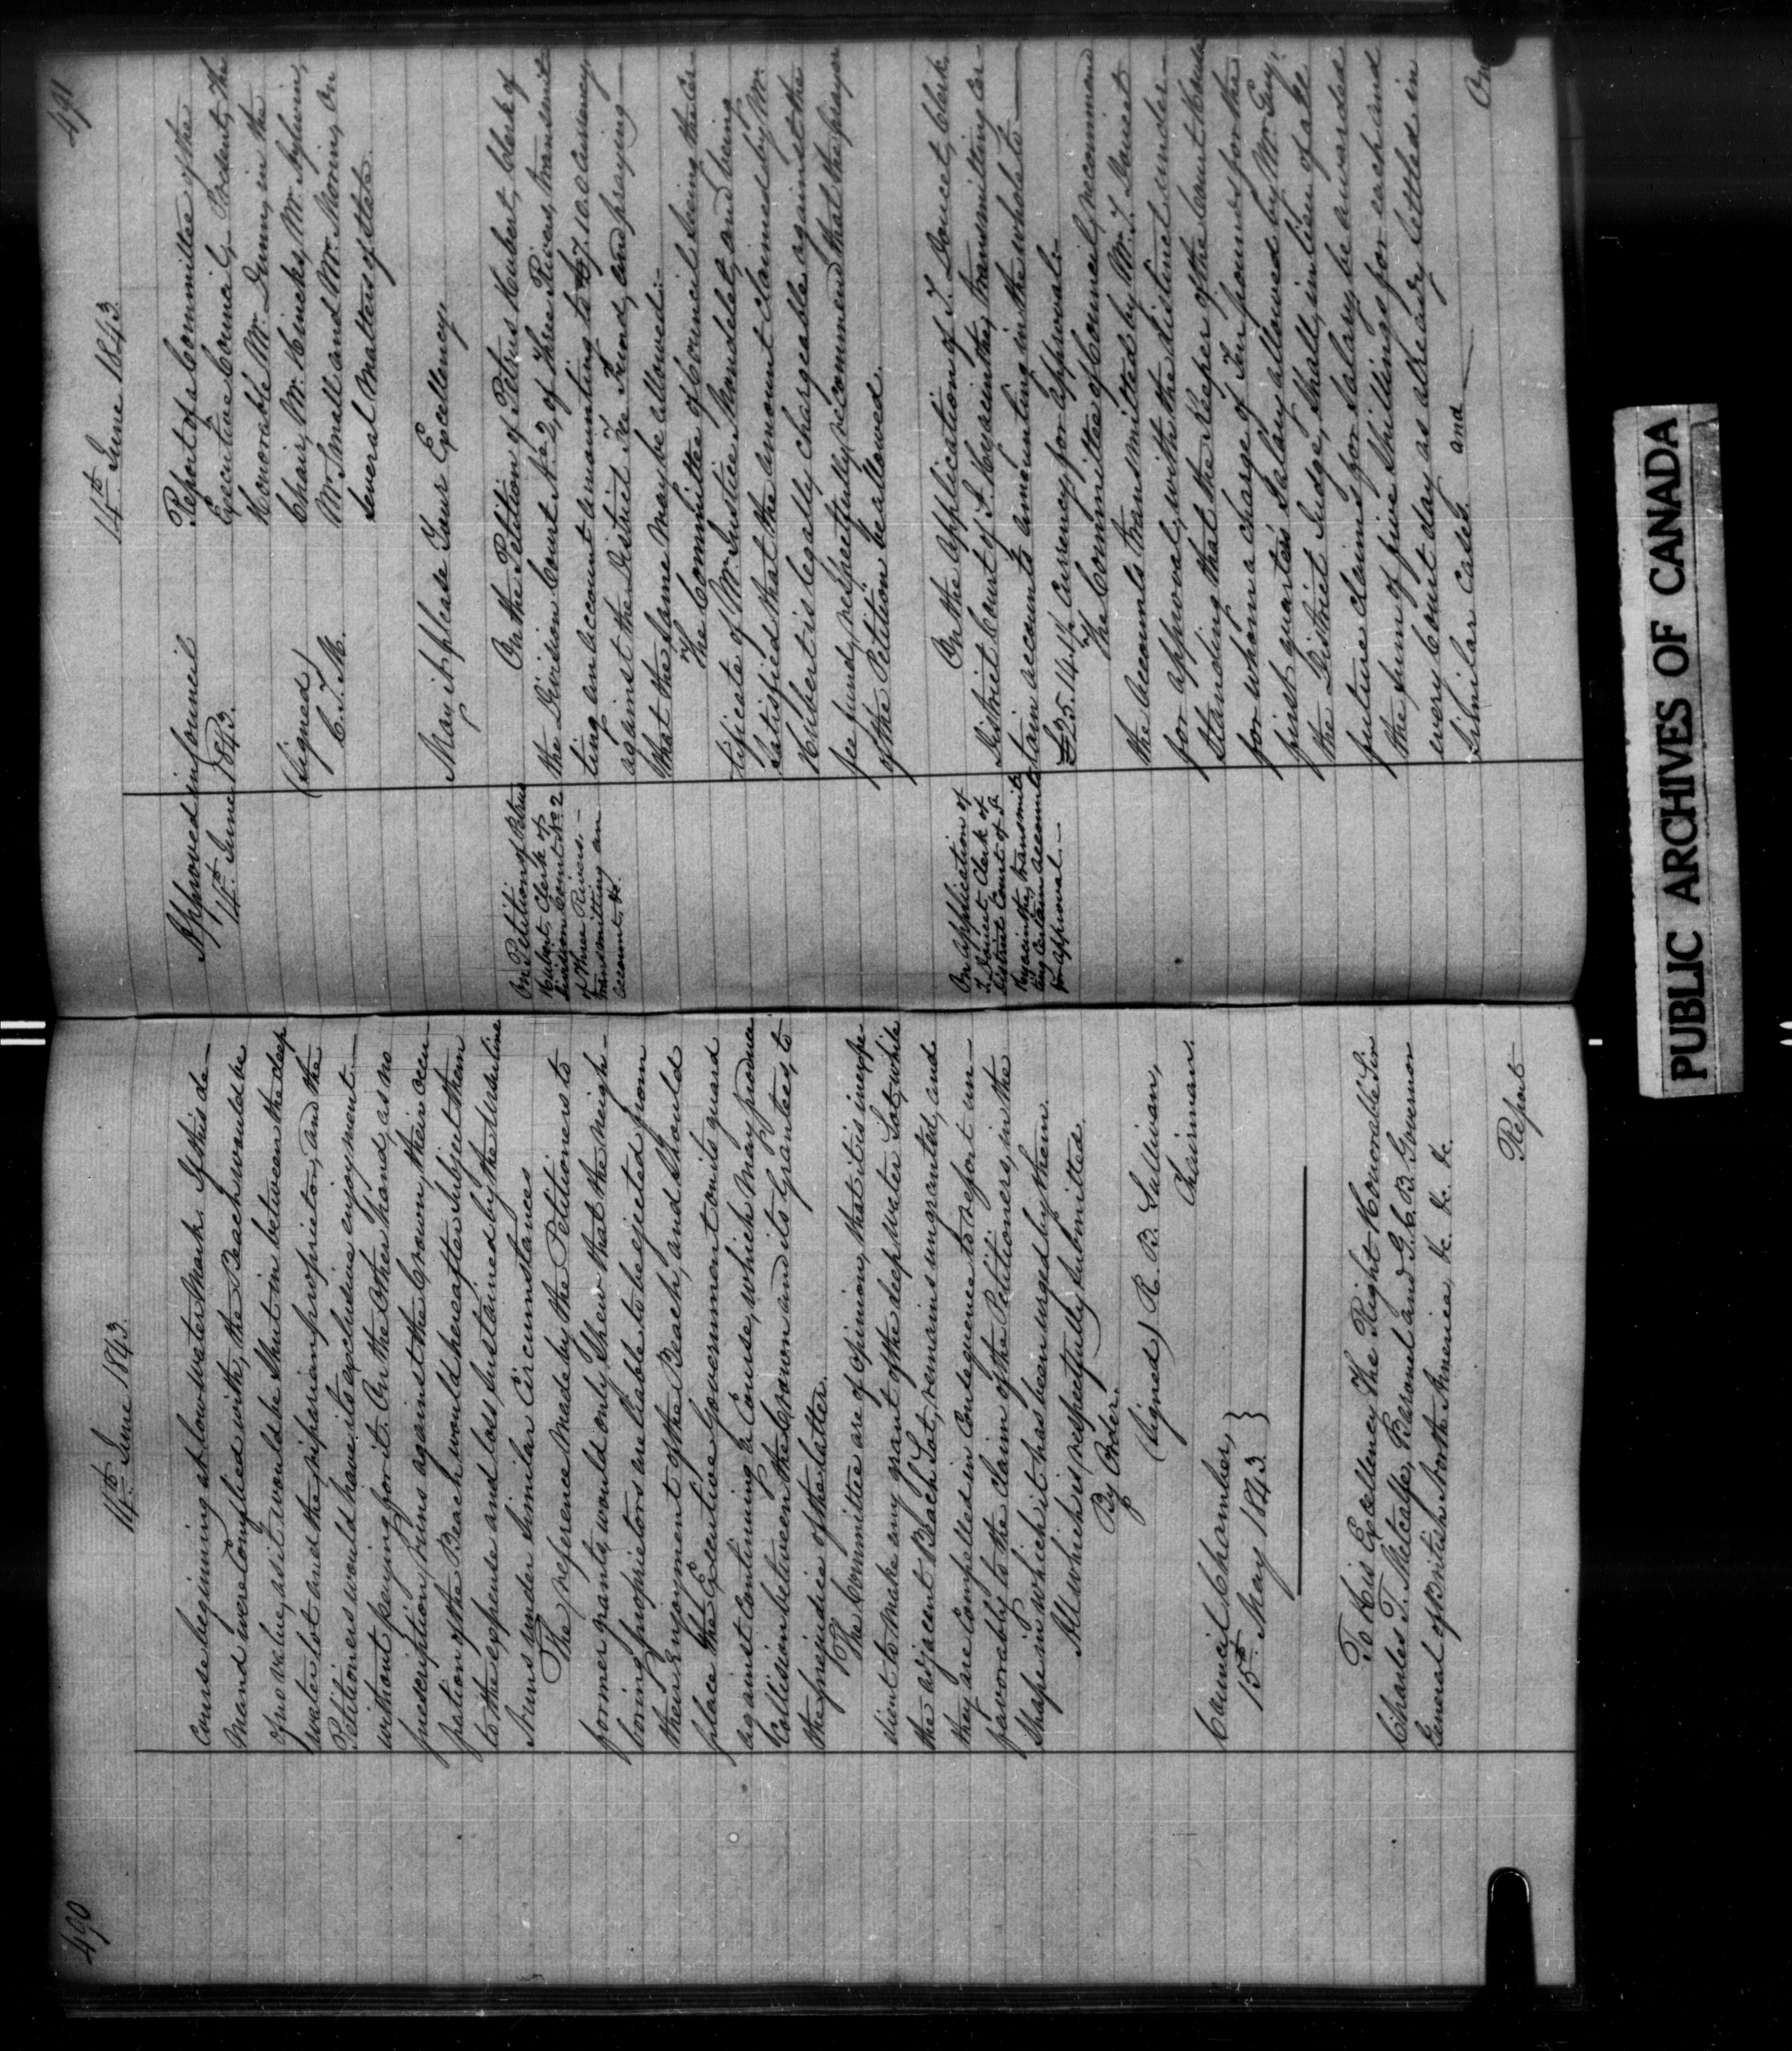 490
14th June 1843.
Course beginning at low water Mark. If this de-
mand were Complied with, the Beach would be
of no value, as it would be Shut in between the deep
water lot and the riparian proprietor, and the
Petitioners would have its exclusive enjoyment
without paying for it. On the other hand, as no
prescription runs against the Crown, their occu
pation of the Beach would hereafter subject them
to the expense and loss sustained by the Ursuline
Nuns under similar Circumstances
The reference made by the Petitioners to
former grants, would only Shew that the neigh-
boring proprietors are liable to be ejected from
their Enjoyment of the Beach, and Should
place the Executive Government on its guard
against Continuing a Course, which May produce
Collision between the Crown and its Grantees, to
the prejudice of the latter.
The Committee are of opinion, that it is inexpe-
dient to make any grant of the deep water Lot, while
the adjacent Beach Lot, remains ungranted, and
they are Compelled in Consequence to report un-
favorably to the Claim of the Petitioners, in the
Shape in which it has been urged by them.
All which is respectfully submitted.
By Order.
(Signed) R. B. Sullivan,
Chairman.
Council Chamber, }
15th May 1843 }
To His Excellency The Right Honorable Sir
Charles T. Metcalfe, Baronet and G.C.B. Governor
General of British North America, &c. &c. &c.
Report
491
14th June 1843.
Approved in Council
14th June 1843.
(Signed)
C. T. M.
Report of a Committee of the
Executive Council, Present, The
Honorable Mr. Dunn, in the
Chair, Mr. Hincks, Mr. Aylwin,
Mr. Small and Mr. Morin, On
several Matters of State.
May it please Your Excellency.
On Petition of Petrus
Hubert, Clerk of
Division Court No 2
of Three Rivers.-
transmitting an
account, &c.
On the Petition of Petrus Hubert, Clerk of
the Division Court No 2, of Three Rivers, transmit
ting an account amounting to £7.10.0 Currency,
against the District Fee Fund, and praying
that the same may be allowed:-
The Committee of Council seeing the Cer-
tificate of Mr. Justice Mondelet, and being
satisfied that the amount claimed by Mr.
Hubert is legally chargeable against the
fee fund, respectfully recommend that the prayer
of the Petition be allowed.
On application of
T. Doucet, Clerk of
District Court of St
Hyacinthe, transmit-
ting Certain accounts
for approval.-
On the application of T. Doucet, Clerk
District Court of St. Hyacinthe, transmitting Cer-
tain accounts amounting in the whole to
£25.14.4½ Currency, for approval:-
The Committee of Council, recommend
the accounts transmitted by Mr. T. Doucet
for approval, with the distinct under-
standing that the Keeper of the Court House
for whom a charge of Ten pounds for the
first quarter's Salary allowed by Mr. Guy,
the District Judge, Shall, in lieu of all
future claims for Salary, be awarded
the sum of five Shillings for each and
every Court day as already settled in
Similar Cases. and
On
PUBLIC ARCHIVES OF CANADA